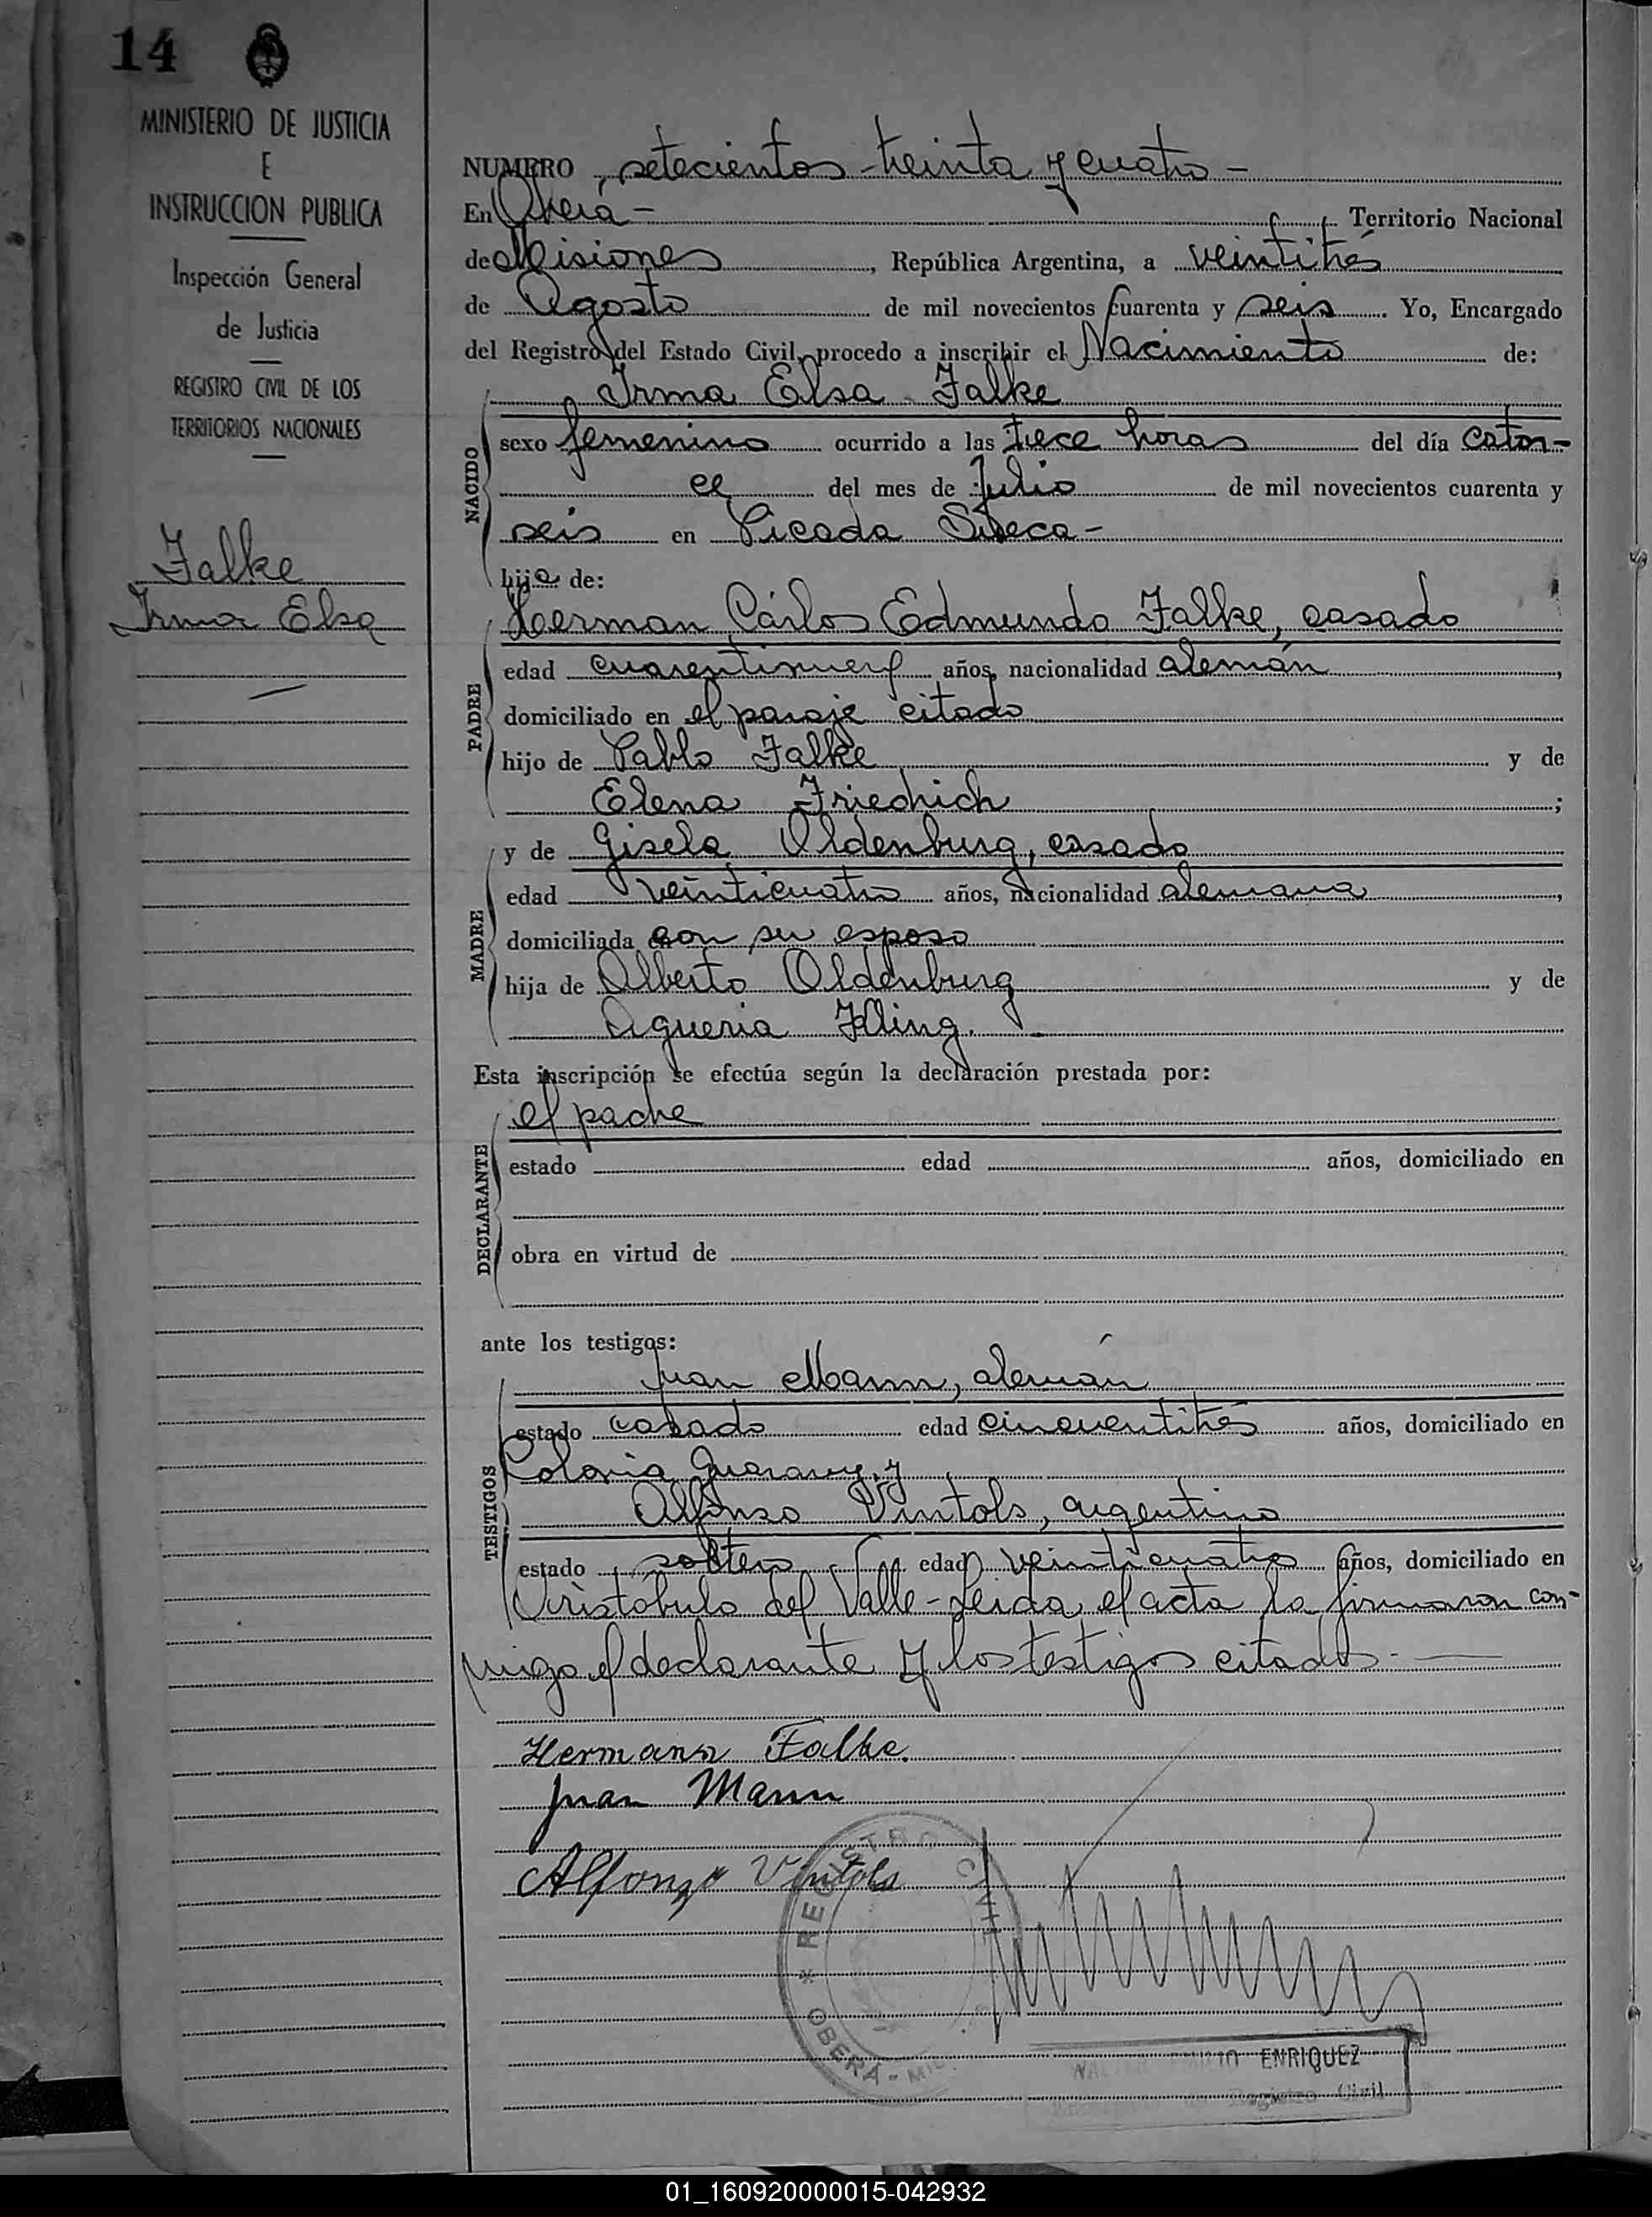 14
MINISTERIO DE JUSTICIA
E
INSTRUCCION PUBLICA
Inspección General
de Justicia
REGISTRO CIVIL DE LOS
TERRITORIOS NACIONALES
Falke
Irma Elsa
NUMERO setecientos treinta y cuatro -
En Obera - Territorio Nacional
de Misiones, República Argentina, a veintitrés
de Agosto de mil novecientos cuarenta y seis. Yo, Encargado
del Registro del Estado Civil, procedo a inscribir el Nacimiento de:
NACIDO
Irma Elsa Falke
sexo femenino ocurrido a las trece horas del día cator-
ce del mes de Julio de mil novecientos cuarenta y
seis en Picada Sueca -
hija de:
PADRE
Herman Cárlos Edmundo Falke, casado
edad cuarentinueve años, nacionalidad alemán,
domiciliado en el paraje citado
hijo de Pablo Falke y de
Elena Friedrich;
MADRE
y de Gisela Oldenburg, casada
edad veinticuatro años, nacionalidad alemana,
domiciliada con su esposo
hija de Alberto Oldenburg y de
Kling.
Esta inscripción se efectúa según la declaración prestada por:
DECLARANTE
el padre
estado edad años, domiciliado en
obra en virtud de
ante los testigos:
TESTIGOS
Juan Mann, alemán
estado casado edad cincuentitrés años, domiciliado en
Colonia Guarany, y
Alfonso Vintols, argentino
estado soltero edad veinticuatro años, domiciliado en
Aristóbulo del Valle - Leida el acta la firmaron con-
migo el declarante y los testigos citados -
Hermann Falke.
Juan Mann
Alfonzo Vintols
REGISTRO CIVIL
* OBERÁ - MIS
ENRIQUEZ
Registro Civil
01_160920000015-042932